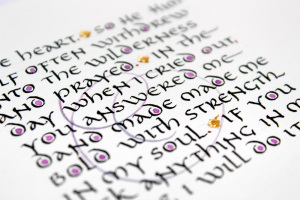 E HEART. SO HE HIM
LF OFTEN WITHDREW
NTO THE WILDERNESS
AND PRAYED. IN THE
DAY WHEN I CRIED OUT,
YOU ANSWERED ME
AND MADE ME
BOLD WITH STRENGTH
IN MY SOUL. IF YOU
SK ANYTHING IN M
I WILL DO IT